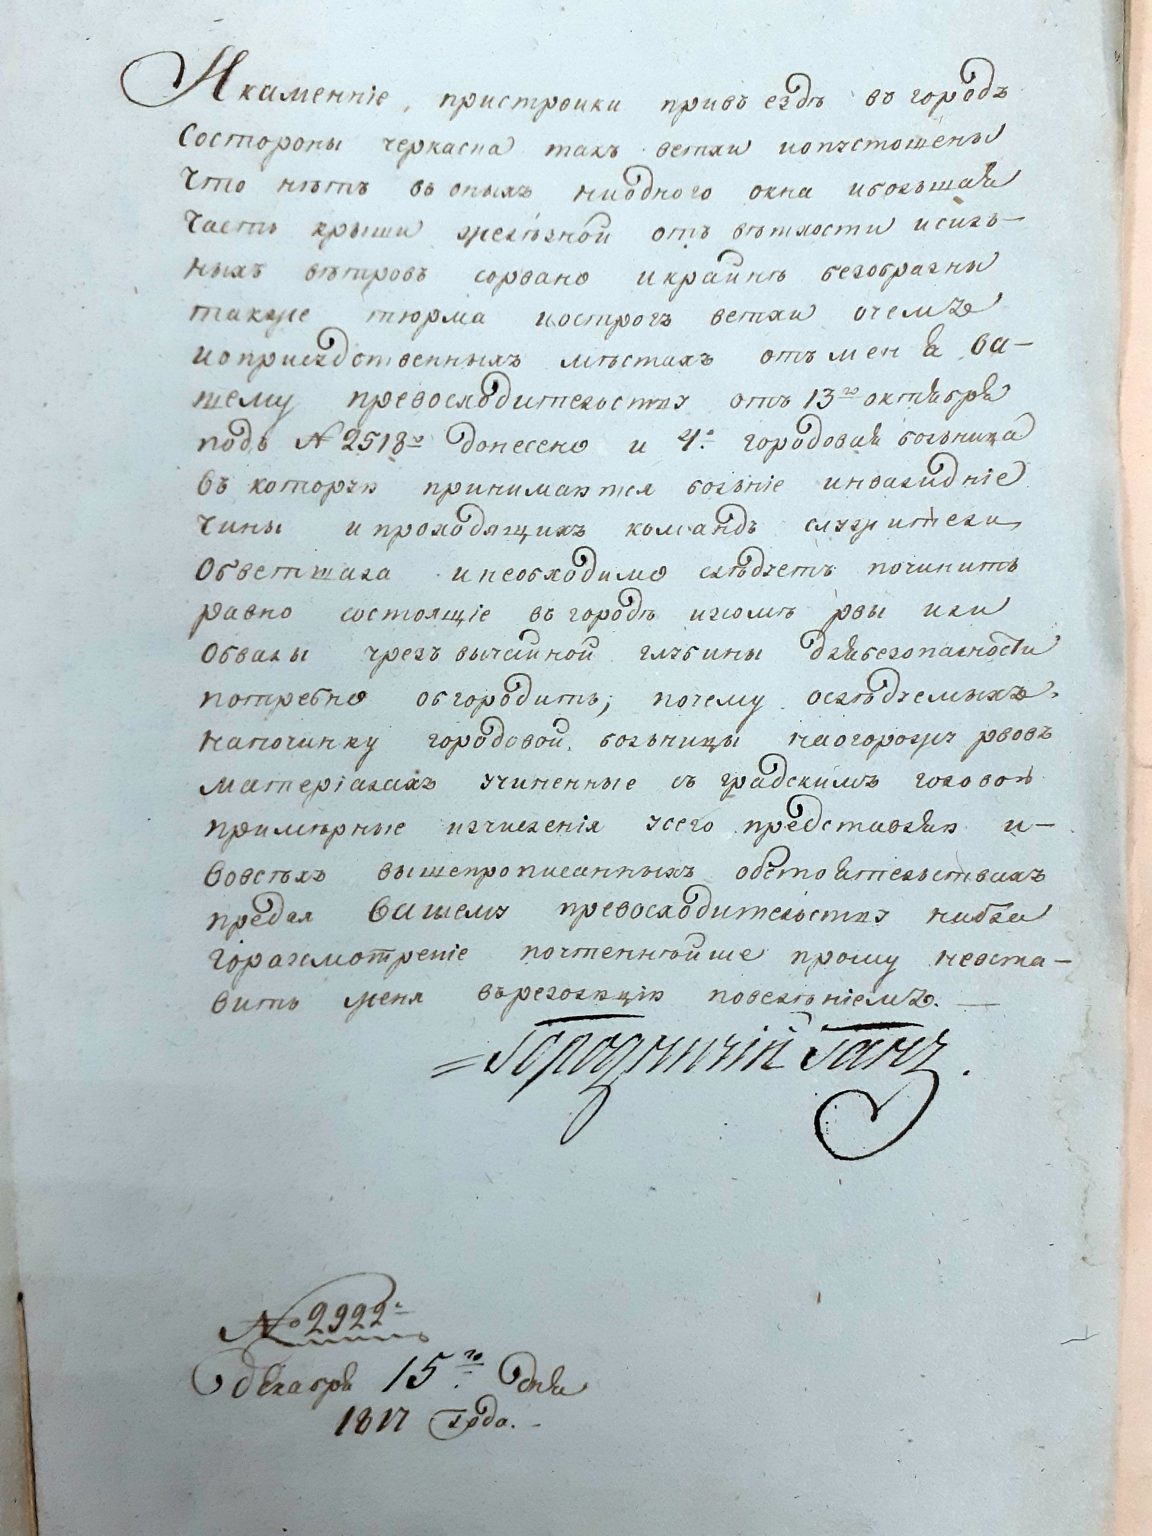 Якаменніе, пристроики привъездѣ въ городъ
Состороны черкасна такъ ветхи иопустошены
Что нѣтъ въ оныхъ ниодного окна ибольшая
Часть крыши желѣзной отъ вѣтхости исиль-
ныхъ вѣтровъ сорвано икрайнѣ безобразны
такуже тюрма иострогъ ветхи очемъ
иоприсудственныхъ мѣстахъ отъ меня ва-
шему превосходительству отъ 13го октября
подъ № 2518мъ донесено и 4е городовая больница
въ которую принимаются больніе инвалидніе
чины ипроходящихъ командъ служители
Обветшала инеобходимо слѣдуетъ починить
равно состоящіе въ городѣ изюмѣ рвы или
Обвалы чрезъвычайной глубины длябезопасности
потребно обгородить; почему ослѣдуемыхъ
напочинку городовой больницы наогорожу рвовъ
матеріалахъ учиненные съ градскимъ головою
примѣрные изчисленія усего представляю и-
вовсѣхъ вышепрописанныхъ обстоятельствахъ
предая вашему превосходительству наблаго
горазсмотреніе почтеннѣйше прошу неоста-
вить меня върезолюцію повелѣніемъ. —
= Городничій Ганъ.
№ 2922.
декабря 15го дня
1817 года. -